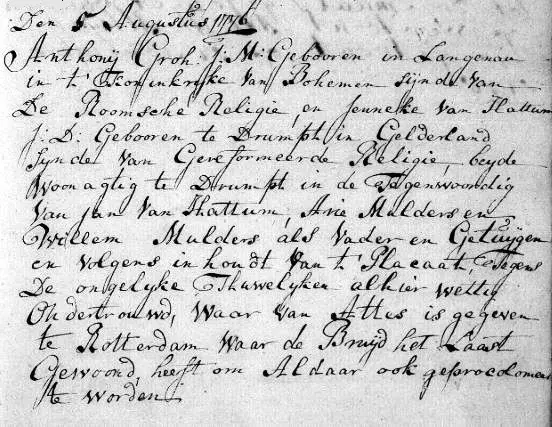 Den 5 Augustus 1776
Anthonij Groh. J: M: Gebooren in Langenau
in t' Koninkrijke van Bohemen sijnde van
De Roomsche Religie, en Jenneke van Hattum
J: D: Gebooren te Drumpt in Gelderland
sijnde van Gereformeerde Religie, beyde
Woonagtig te Drumpt in de Tegenwoordig
van Jan van Hattum, Arie Mulders en
Willem Mulders als vader en Getuijgen
en volgens inhoudt van t' Placaat, Tegens
De ongelyke Thuwelyken alhier wettig
Ondertrouwd, Waar van Attes is gegeven
te Rotterdam waar de Bruyd het Laast
Gewoond, heeft om Aldaar ook
te worden